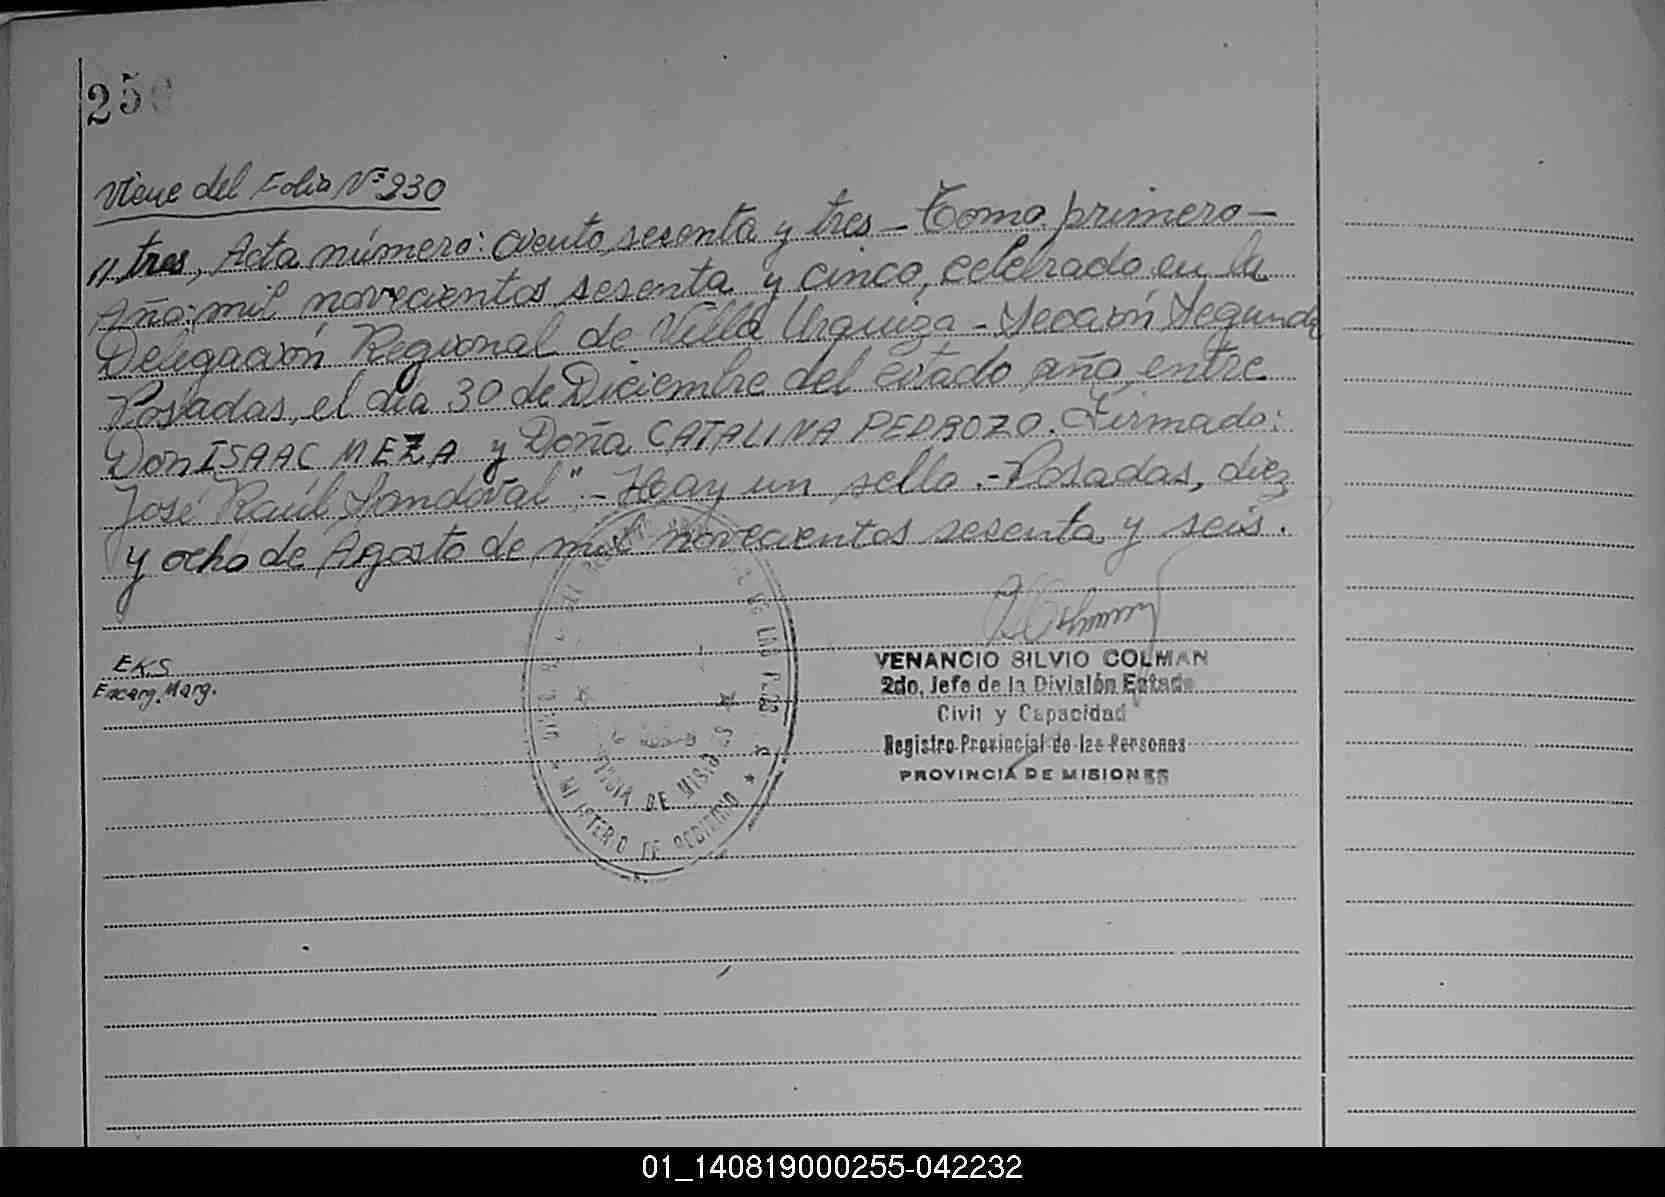 250
Viene del Folio Nº 230
// tres, Acta número: ciento sesenta y tres - Tomo primero -
Año: mil novecientos sesenta y cinco, celebrado en la
Delegación Regional de Villa Urquiza - Sección Segunda
Posadas, el día 30 de Diciembre del citado año, entre
Don ISAAC MEZA y Doña CATALINA PEDROZO. Firmado:
José Raúl Sandoval".- Hay un sello.- Posadas, diez
y ocho de Agosto de mil novecientos sesenta y seis.
EKS
Encarg. Marg.
DE LAS
PROVINCIA DE MISIONES
MINISTERIO DE GOBIERNO
VENANCIO SILVIO COLMAN
2do. Jefe de la División Estado
Civil y Capacidad
Registro Provincial de las Personas
PROVINCIA DE MISIONES
01_140819000255-042232